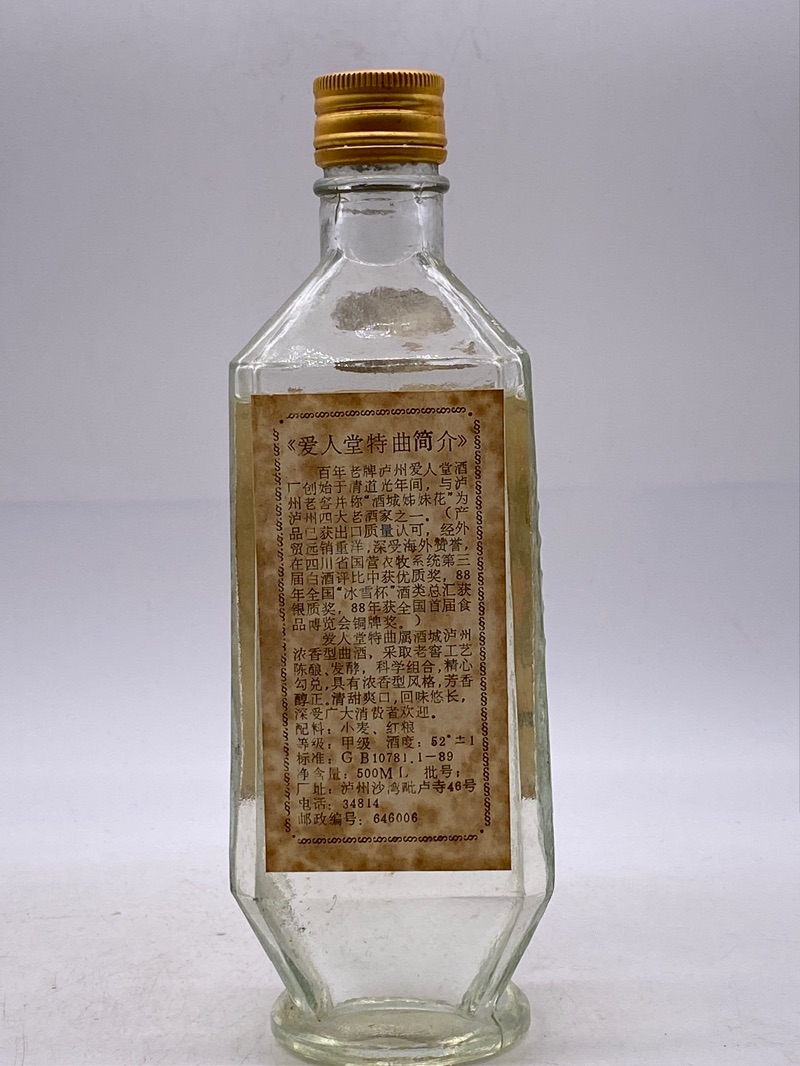 《爱人堂特曲简介》
百年老牌泸州爱人堂酒
厂创始于清道光年间，与泸
州老窖并称“酒城姊妹花”为
泸州四大老酒家之一。（产
品已获出口质量认可，经外
贸远销重洋,深受海外赞誉，
在四川省国营农牧系统第三
届白酒评比中获优质奖，88
年全国“冰雪杯”酒类总汇获
银质奖，88年获全国首届食
品博览会铜牌奖。）
爱人堂特曲属酒城泸州
浓香型曲酒，采取老窖工艺
陈酿、发酵，科学组合,精心
勾兑,具有浓香型风格,芳香
醇正.清甜爽口,回味悠长，
深受广大消费者欢迎。
配料：小麦、红粮
等级：甲级 酒度：52°±1
标准：GB10781.1－89
净含量：500ML 批号：
厂址：泸州沙湾毗卢寺46号
电话：34814
邮政编号：646006